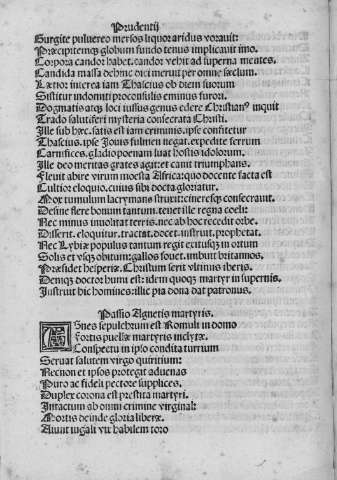 Prudentij
Surgite pulvereo mersos liquor aridus voravit:
Præcipitemq; globum fundo tenus implicavit imo.
Corpora candor habet. candor vehit ad superna mentes.
Candida massa dehinc dici meruit per omne sæclum.
Lætior interea iam Thascius ob diem suorum
Sistitur indomiti proconsulis eminus furori.
Dogmatis atq; loci iussus genus edere Christianus inquit
Trado salutiferi mysteria consecrata Christi.
Ille sub hæc. satis est iam criminis. ipse confitetur
Thascius. ipse Jouis fulmen negat. expedite ferrum
Carnifices. gladio poenam luat hostis idolorum.
Ille deo meritas grates agit: et canit triumphans.
Fleuit abire virum moesta Africa: quo docente facta est
Cultior eloquio. cuius sibi docta gloriatur.
Mox tumulum lacrymans struxit: cineresq; consecrauit.
Desine flere bonum tantum. tenet ille regna coeli:
Nec minus inuolitat terris. nec ab hoc recedit orbe.
Disserit. eloquitur. tractat. docet. instruit. prophetat.
Nec Lybiæ populus tantum regit exitusq; in ortum
Solis et vsq; obitum: gallos fouet. imbuit britannos.
Præsidet hesperiæ. Christum serit vltimus iberis.
Deniq; doctor humi est: idem quoq; martyr in supernis.
Instruit hic homines: illic pia dona dat patronus.
Passio Agnetis martyris.
Agnes sepulchrum est Romuli in domo
Fortis puellæ martyris inclytæ.
Conspectu in ipso condita turrium
Seruat salutem virgo quiritium:
Necnon et ipsos protegit aduenas
Puro ac fideli pectore supplices.
Duplex corona est prestita martyri.
Intactum ab omni crimine virginal:
Mortis deinde gloria liberæ.
Aiunt iugali vix habilem toro